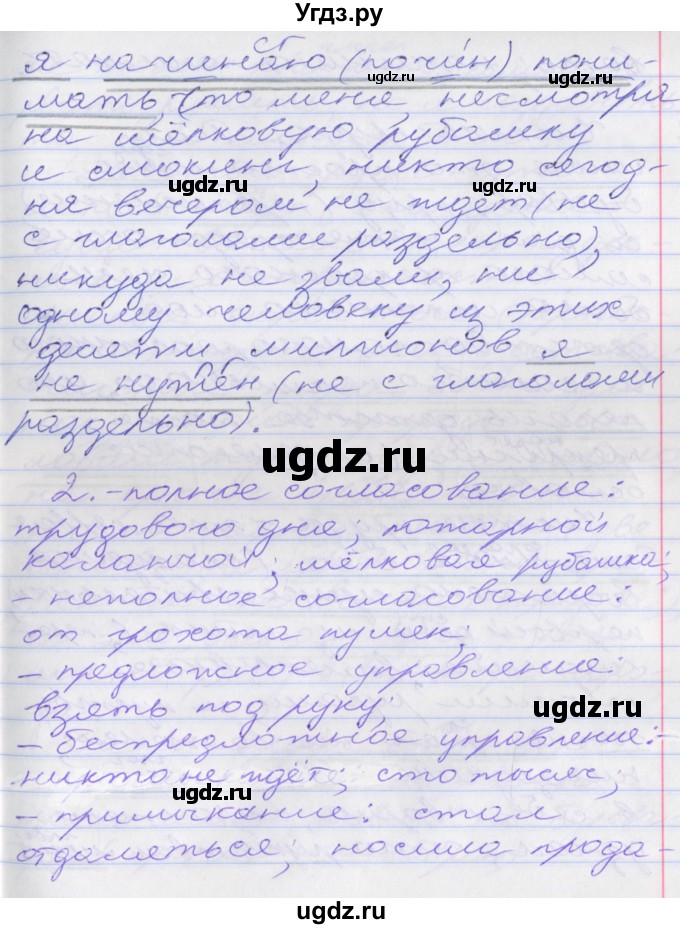 Угдз.ру
я начинаю (почин) пони-
мать, что меня, несмотря
на шёлковую рубашку
и смокинг, никто сегод-
ня вечером не ждёт (не
с глаголами раздельно),
никуда не звали, ни
одному человеку из этих
десяти миллионов я
не нужен (не с глаголами
раздельно).
2. - полное согласование:
трудового дня; пожарной
каланчой; шёлковая рубашка;
- неполное согласование:
от грохота пушек;
- предложное управление:
взять под руку;
- беспредложное управление:-
никто не ждёт; сто тысяч;
- примыкание: стал
отдаляться; носила прода-
ugdz.ru
ugdz.ru
ugdz.ru
ugdz.ru
ugdz.ru
ugdz.ru
ugdz.ru
ugdz.ru
ugdz.ru
ugdz.ru